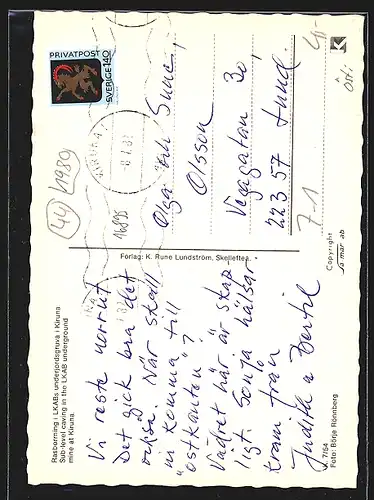 Rasbrytning i LKABs underjordsgruva i Kiruna
Sub-level caving in the LKAB underground
mine at Kiruna
Vi reste norrut
Det gick bra det
också. När skall
ni komma till
"östkanten"?
Vädret här är skap-
ligt. Sonja hälsar
Kram från
Judith o Bertil
K 7/54
Foto: Börje Rönnberg
Förlag: K. Rune Lundström, Skellefteå.
PRIVATPOST
SVERIGE 140
KIRUNA
16895
44
1989
Olga och Sune,
Olsson
Vegagatan 30,
223 57 Lund.
7-1
Copyright
mar ab
K